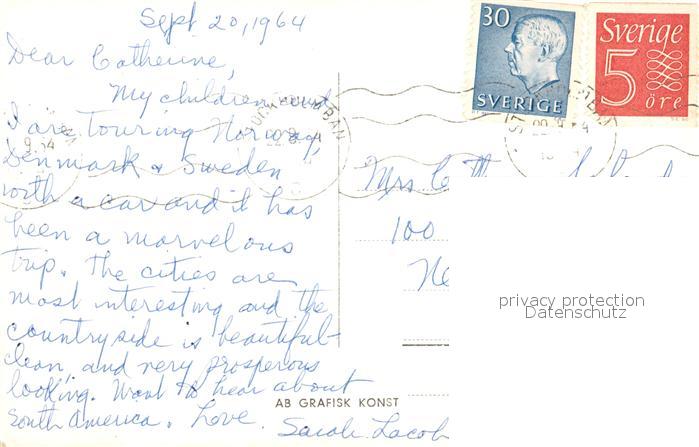 Sept 20, 1964
Dear Catherine,
My children and
I are Touring Norway,
Denmark & Sweden
with a car and it has
been a marvelous
trip. The cities are
most interesting and the
countryside is beautiful-
clean and very prosperous
looking. Want to hear about
South America. Love
Sarah Lacob
AB GRAFISK KONST
30
SVERIGE
Sverige
5
öre
Mrs
100
privacy protection
Datenschutz